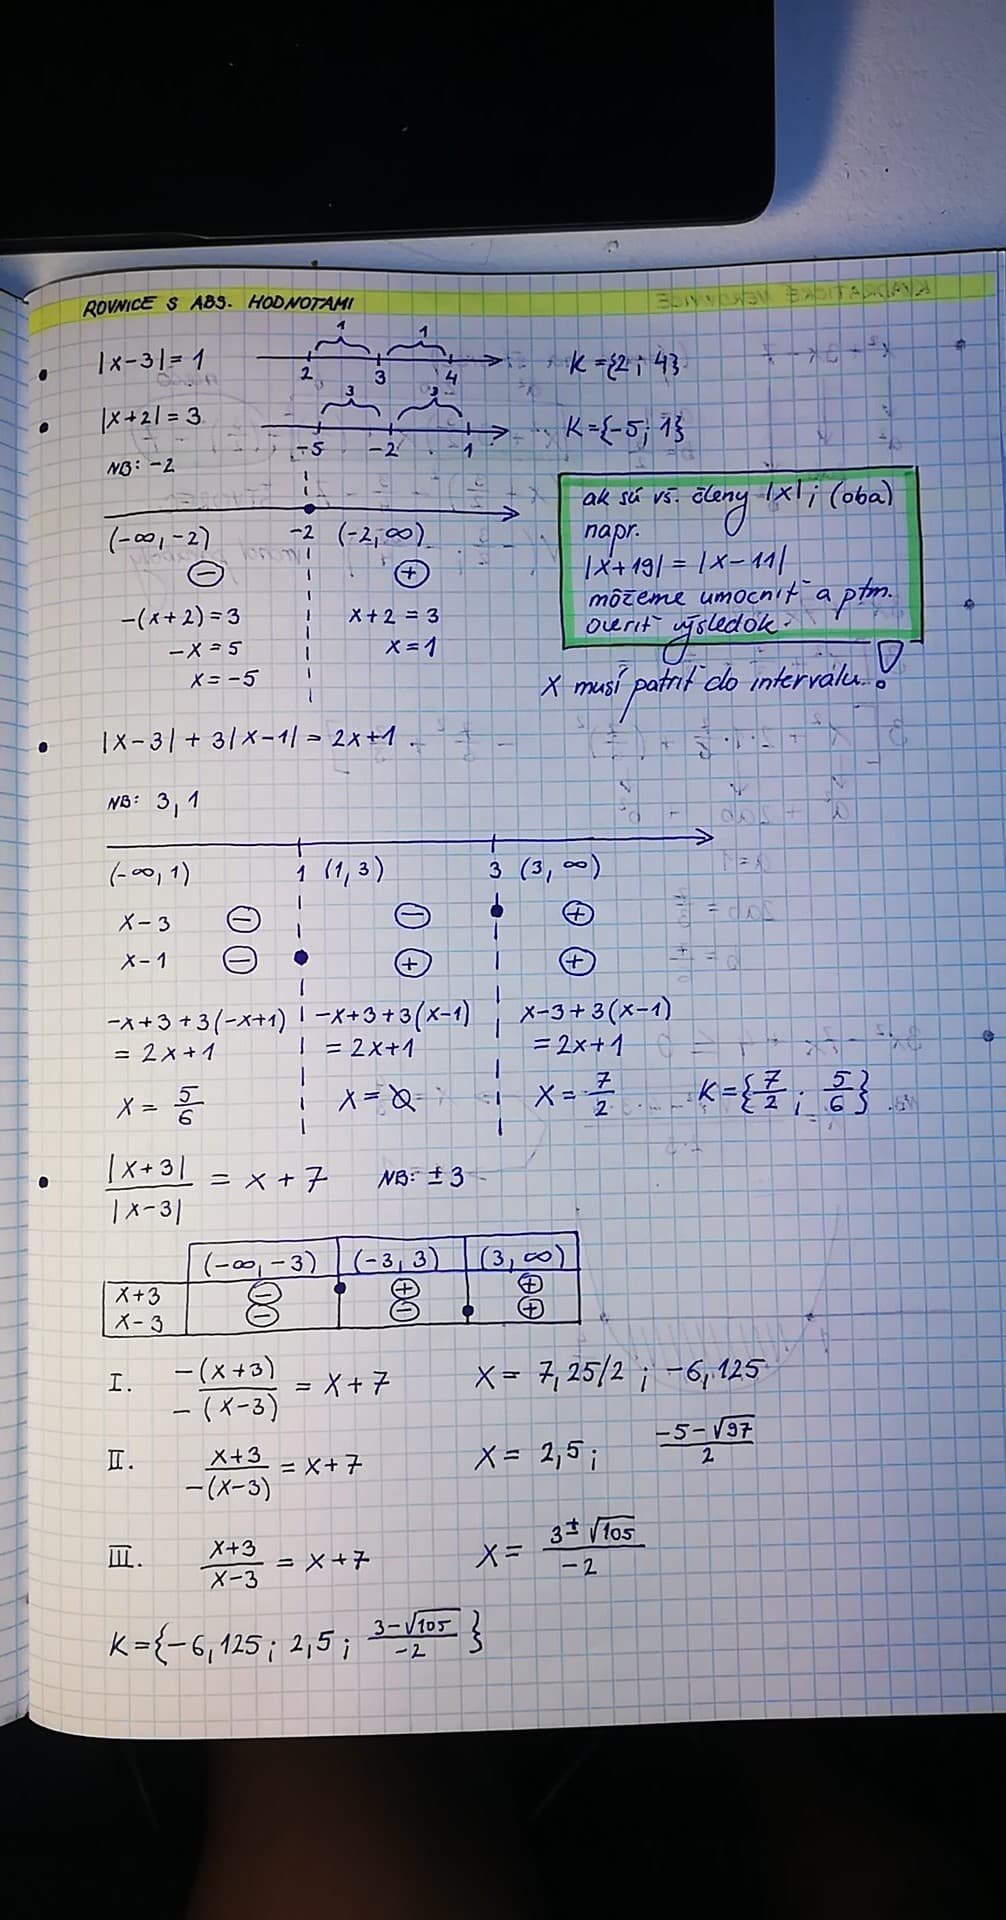 ROVNICE S ABS. HODNOTAMI
|x-3| = 1
1 1
2 3 4
K = {2 ; 4}
|x+2| = 3
3 3
-5 -2 1
K = {-5 ; 1}
NB: -2
(-∞, -2) -2 (-2, ∞)
⊖ ⊕
-(x+2) = 3 x+2 = 3
-x = 5 x = 1
x = -5
ak sú vš. členy |x| ; (oba)
napr.
|x+19| = |x-11|
môžeme umocniť a ptm.
overiť výsledok.
x musí patriť do intervalu!
|x-3| + 3|x-1| = 2x+1
NB: 3, 1
(-∞, 1) 1 (1, 3) 3 (3, ∞)
x-3 ⊖ ⊖ ⊕
x-1 ⊖ ⊕ ⊕
-x+3+3(-x+1) -x+3+3(x-1) x-3+3(x-1)
= 2x+1 = 2x+1 = 2x+1
x = 5/6 x = ∅ x = 7/2 K = {7/2 ; 5/6}
|x+3| / |x-3| = x+7 NB: ±3
(-∞, -3) (-3, 3) (3, ∞)
x+3 ⊖ ⊕ ⊕
x-3 ⊖ ⊖ ⊕
I. -(x+3) / -(x-3) = x+7 x = 7,25/2 ; -6,125
II. x+3 / -(x-3) = x+7 x = 2,5 ; (-5-√97)/2
III. x+3 / x-3 = x+7 x = (3±√105)/-2
K = {-6,125 ; 2,5 ; (3-√105)/-2}